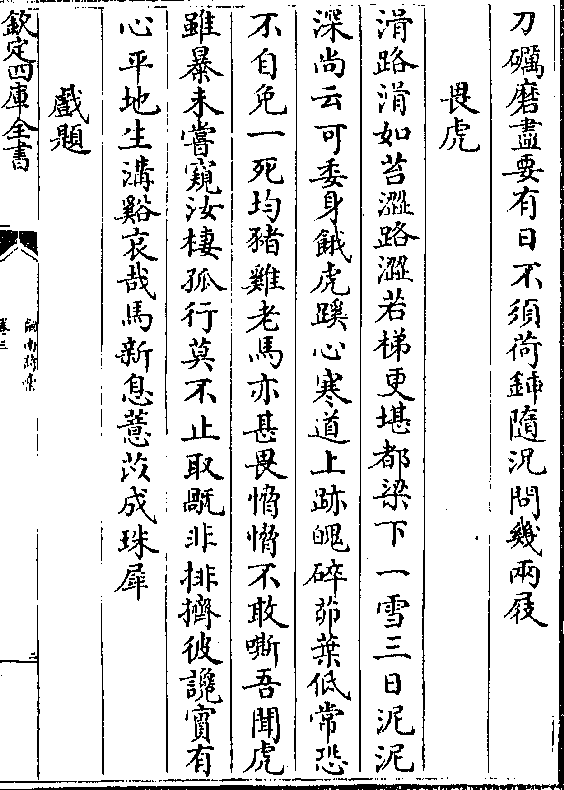 刀礪磨盡要有日不須荷鍤隨況問幾兩屐
畏虎
滑路滑如苔澀路澀若梯更堪都梁下一雪三日泥泥
深尚云可委身餓虎蹊心寒道上跡魄碎茆葉低常恐
不自免一死均豬雞老馬亦甚畏慴慴不敢嘶吾聞虎
雖暴未嘗窺汝棲孤行莫不止取骴非排擠彼讒實有
心平地生溝谿哀哉馬新息薏苡成珠犀
戲題
欽定四庫全書
卷三